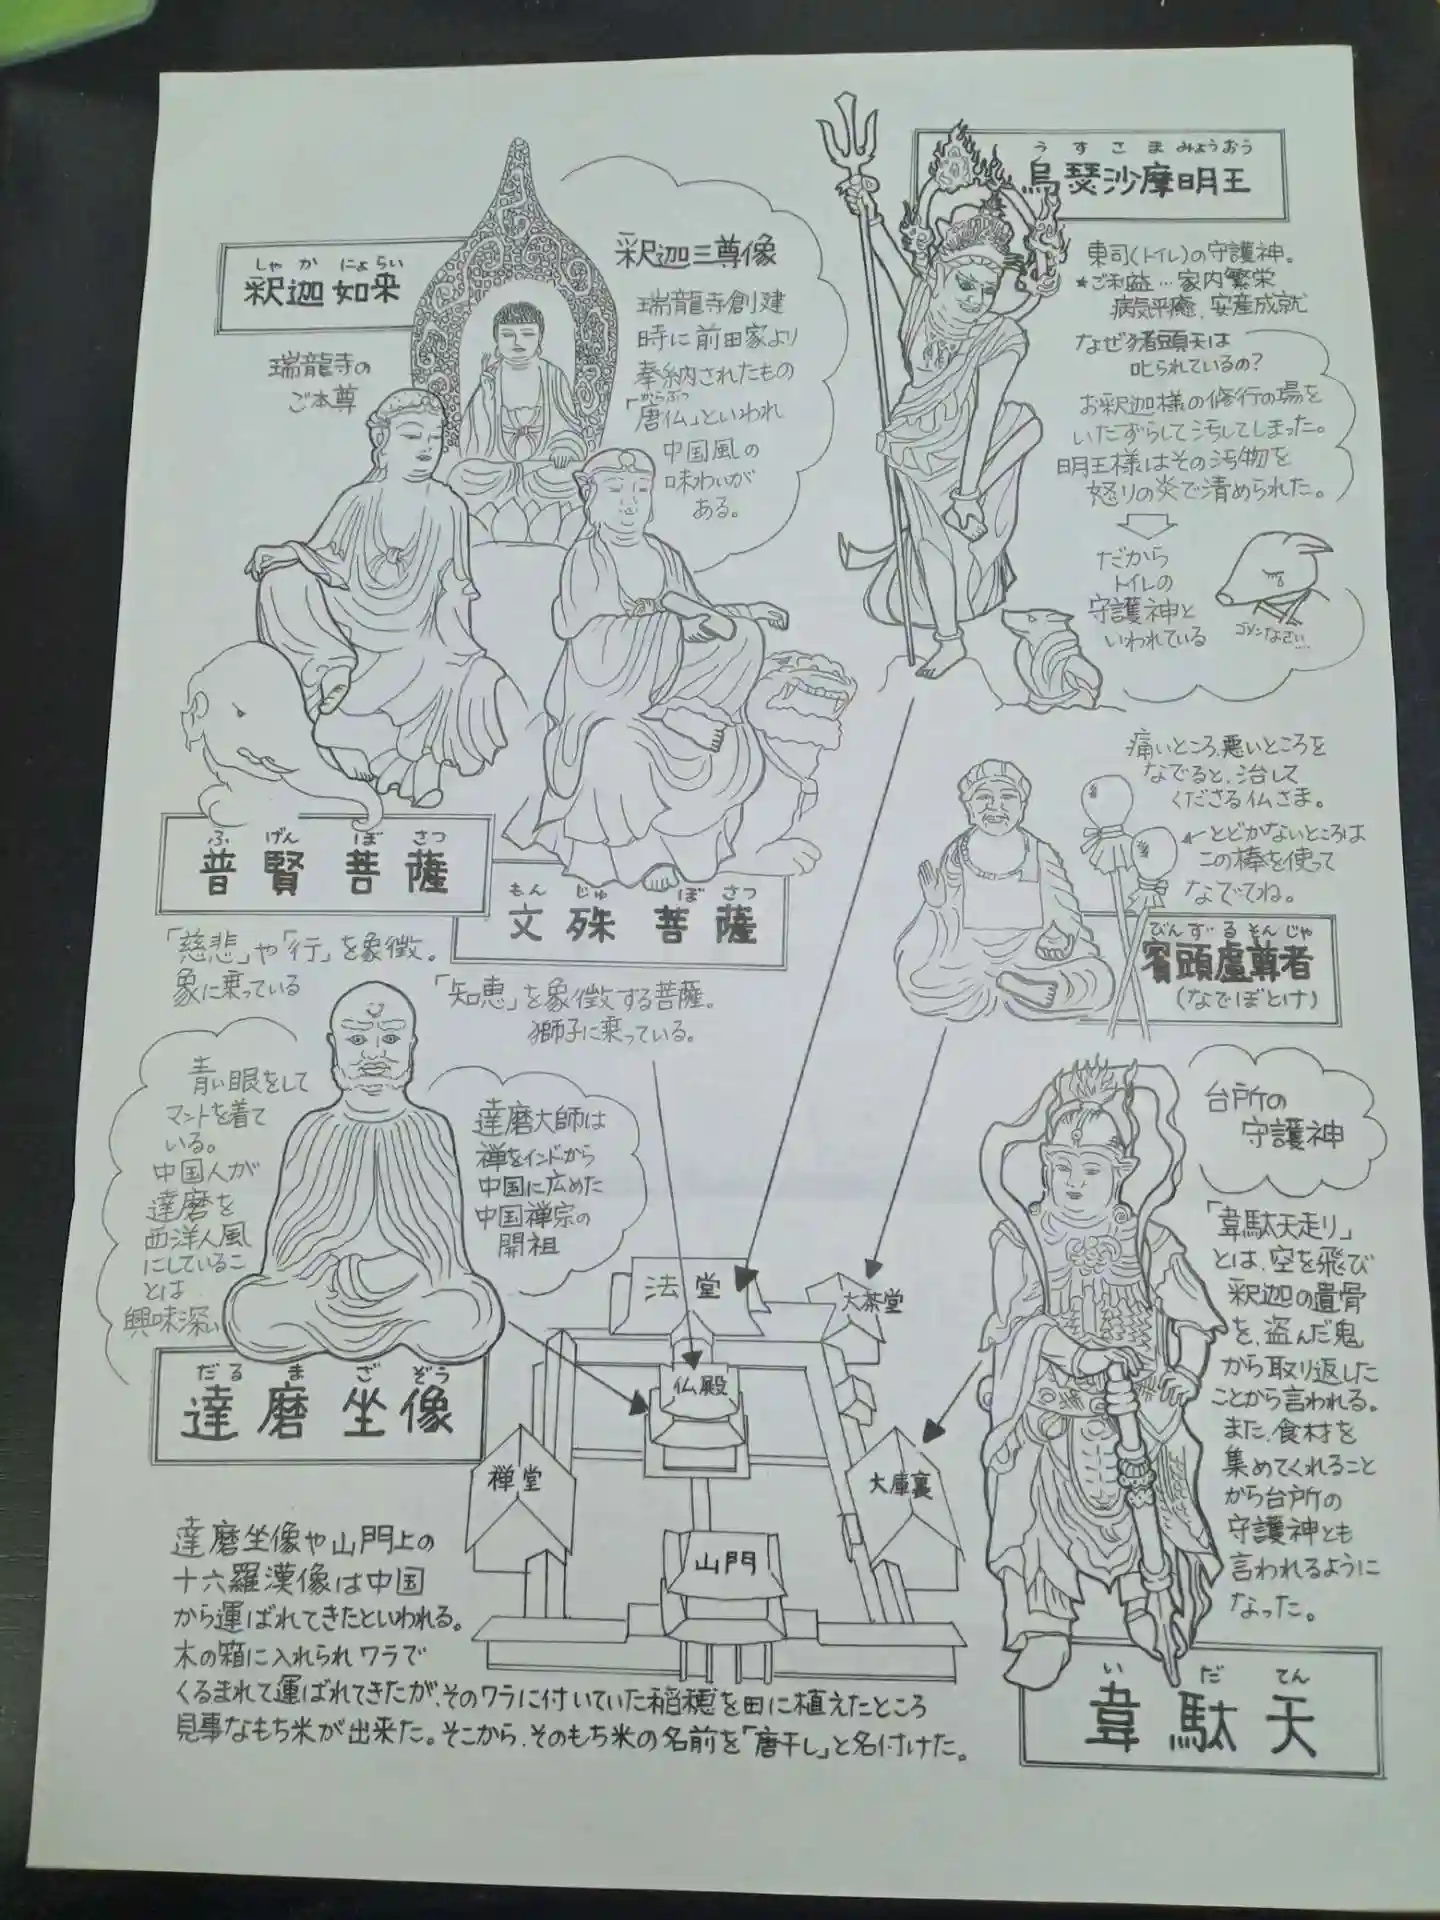 しゃ か にょ らい
釈迦如来
瑞龍寺の
ご本尊
釈迦三尊像
瑞龍寺創建
時に前田家より
奉納されたもの
からぶつ
「唐仏」といわれ
中国風の
味わいが
ある。
う す さ ま みょうおう
烏瑟沙摩明王
東司(トイレ)の守護神。
★ご利益…家内繁栄
病気平癒、安産成就
なぜ猪頭天は
叱られているの?
お釈迦様の修行の場を
いたずらして汚してしまった。
明王様はその汚物を
怒りの炎で清められた。
だから
トイレの
守護神と
いわれている
ゴメンなさい…
ふ げん ぼ さつ
普賢菩薩
「慈悲」や「行」を象徴。
象に乗っている
もん じゅ ぼ さつ
文殊菩薩
「知恵」を象徴する菩薩。
獅子に乗っている。
痛いところ、悪いところを
なでると、治して
くださる仏さま。
←とどかないところは
この棒を使って
なでてね。
びんずるそんじゃ
賓頭盧尊者
(なでぼとけ)
青い眼をして
マントを着て
いる。
中国人が
達磨を
西洋人風
にしているこ
とは
興味深い
達磨大師は
禅をインドから
中国に広めた
中国禅宗の
開祖
だる ま ざ ぞう
達磨坐像
台所の
守護神
「韋駄天走り」
とは、空を飛び
釈迦の遺骨
を、盗んだ鬼
から取り返した
ことから言われる。
また、食材を
集めてくれること
から台所の
守護神とも
言われるように
なった。
い だ てん
韋駄天
法堂
大茶堂
仏殿
禅堂
大庫裏
山門
達磨坐像や山門上の
十六羅漢像は中国
から運ばれてきたといわれる。
木の箱に入れられワラで
くるまれて運ばれてきたが、そのワラに付いていた稲穂を田に植えたところ
見事なもち米が出来た。そこから、そのもち米の名前を「唐干し」と名付けた。